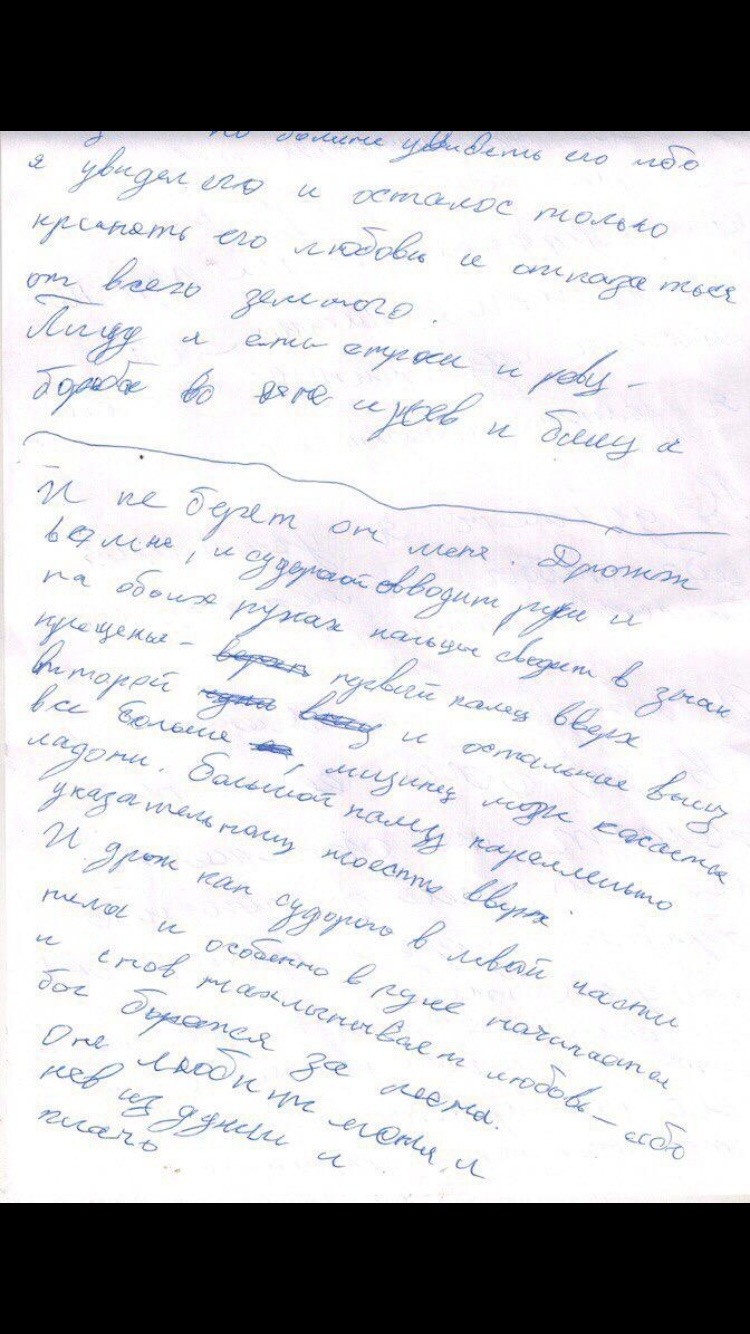 но увидеть его ибо
я увидел его и осталос только
принять его любовь и отказаться
от всего земного.
Пишу я эти строки и реву -
борьба во мне и
И не берет он меня. Дрожж
во мне, и судорогой сводит руки и
на обоих руках пальцы сводит в знак
крещенье - первый палец вверх
второй и остальные вниз
все больше, мизинец может касаться
ладони. Большой палец параллельно
указательному тоесть вверх.
И дрож как судорого в левой части
тела и особенно в руке начинается
и снов нахлынывает любовь - ибо
бог борется за меня.
Оне любит меня, и
из души и
плачь